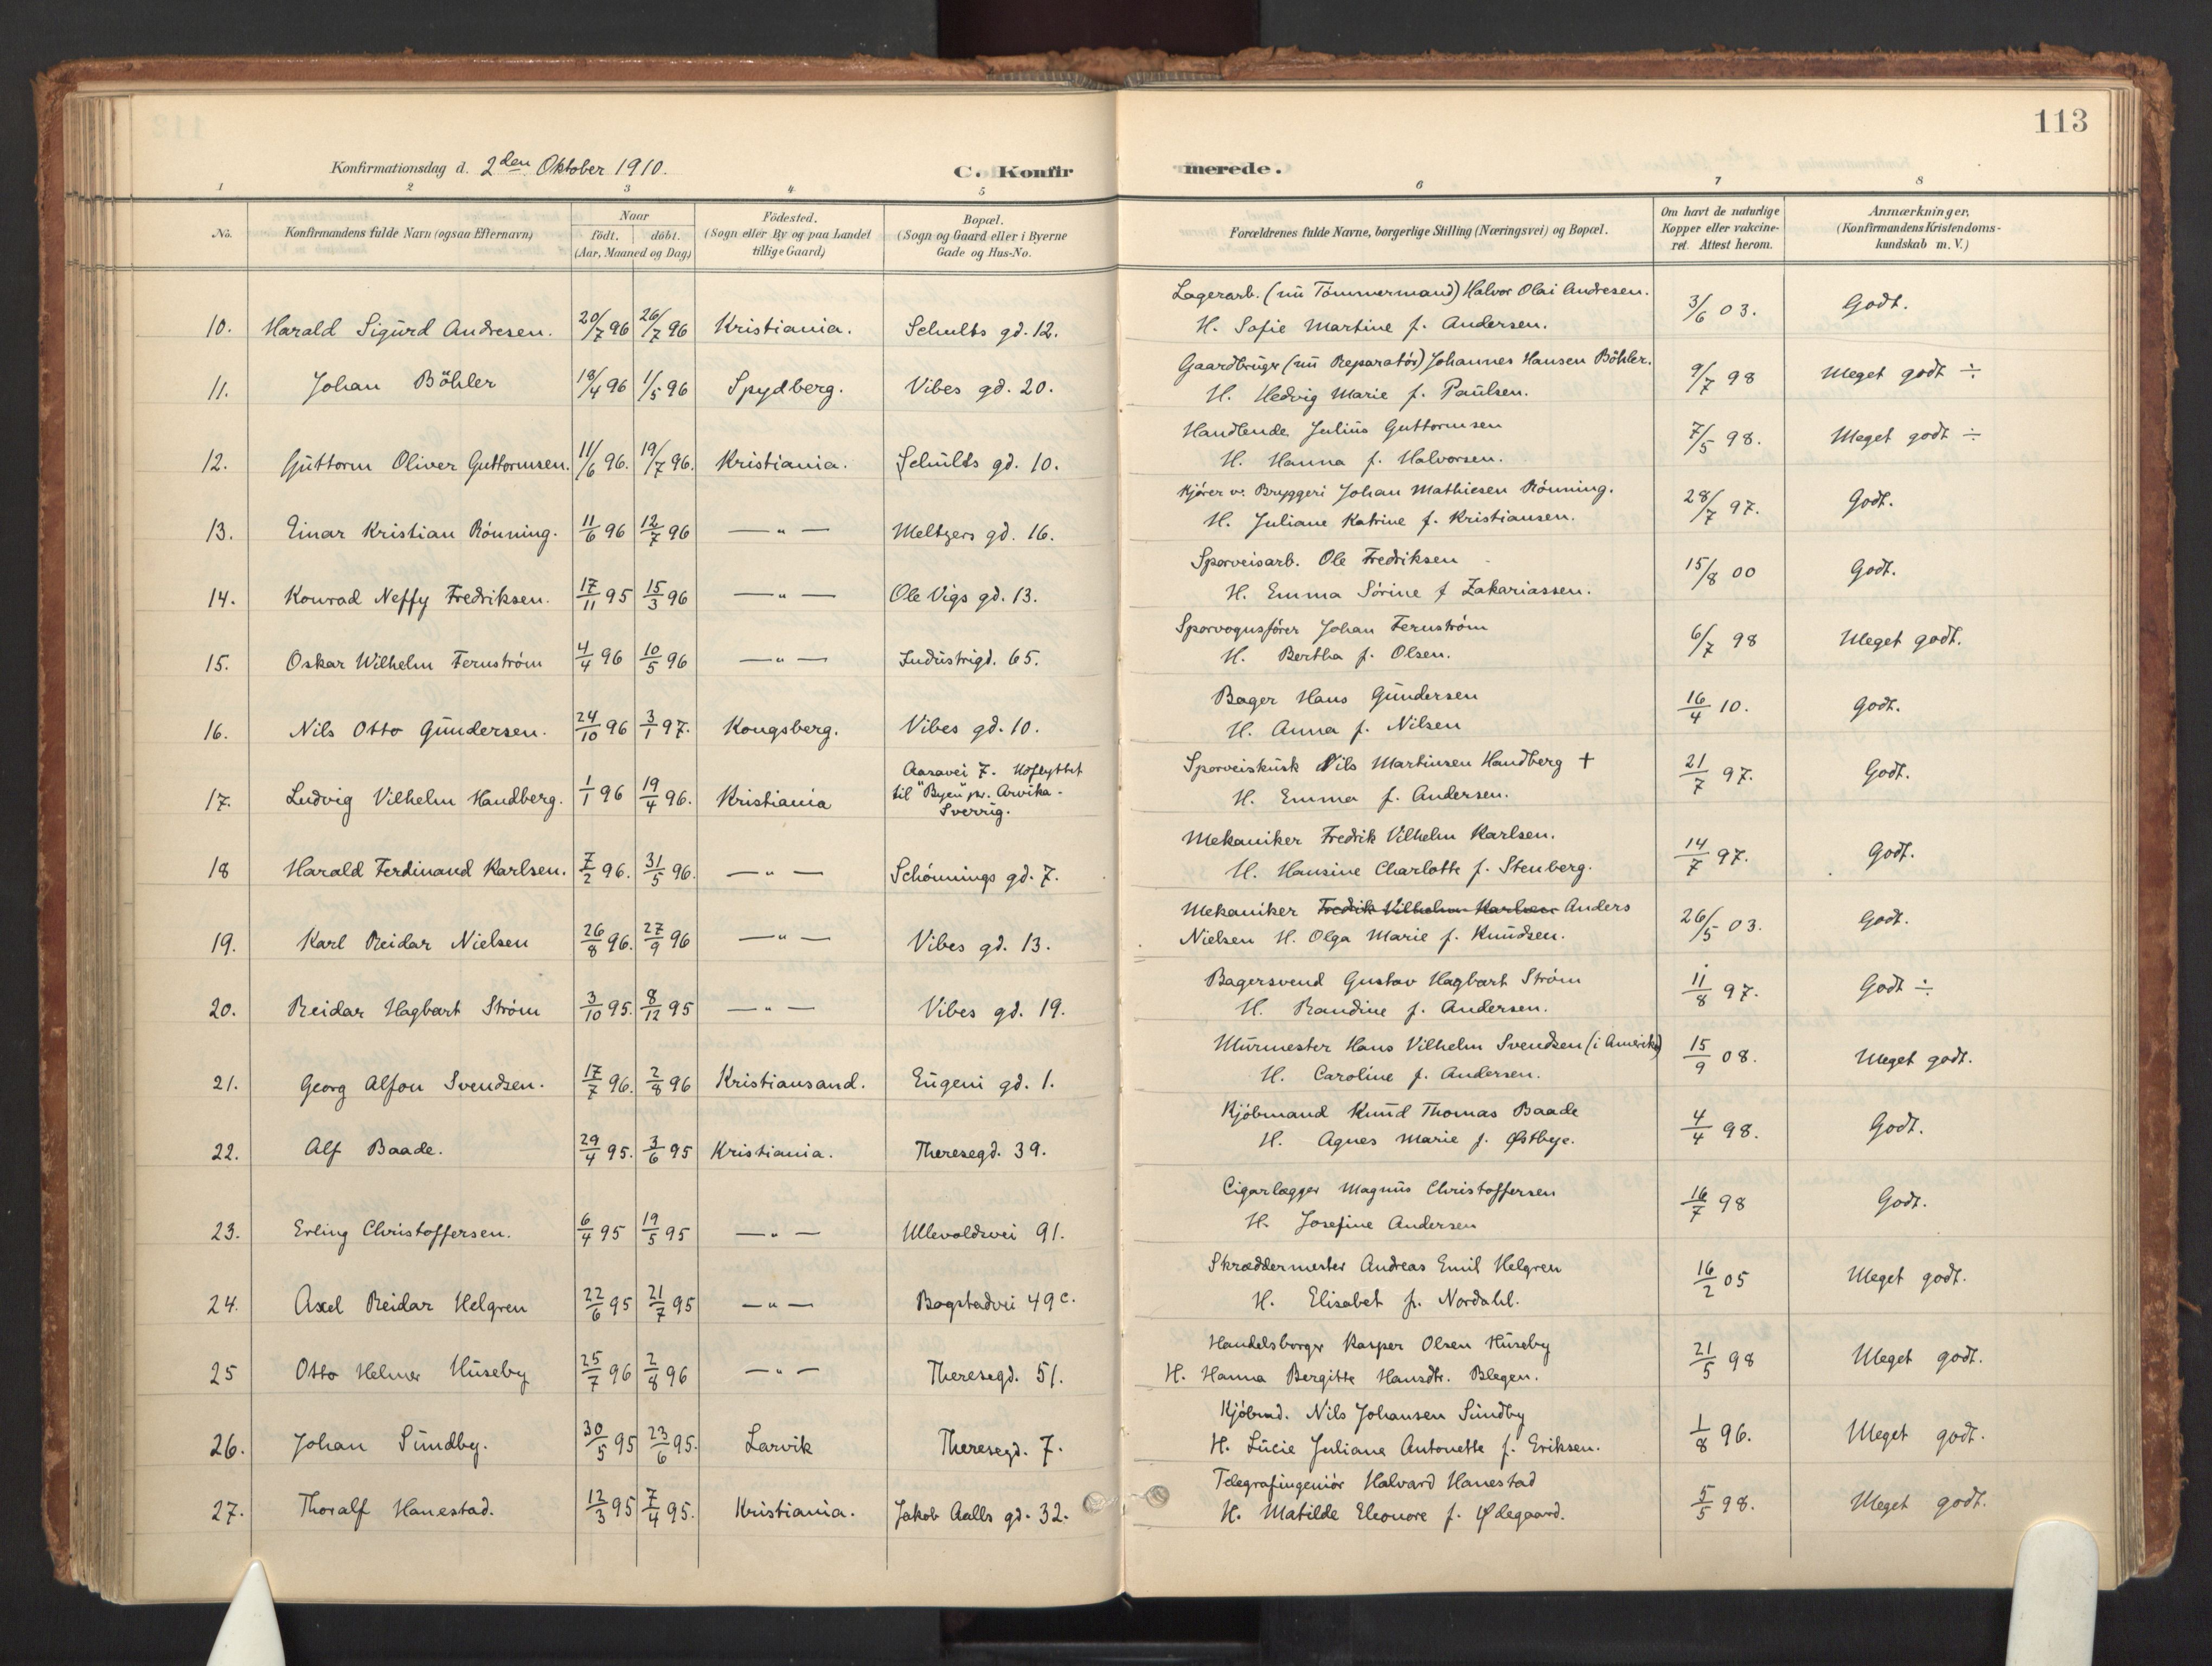 113
Konfirmationsdag d. 2den Oktober 1910. C. Konfir merede.
1 2 3 4 5 6 7 8
No. Konfirmandens fulde Navn (ogsaa Efternavn) Naar födt. döbt. (Aar, Maaned og Dag) Födested. (Sogn eller By og paa Landet tillige Gaard) Bopæl. (Sogn og Gaard eller i Byerne Gade og Hus-No. Forældrenes fulde Navne, borgerlige Stilling (Næringsvei) og Bopæl. Om havt de naturlige Kopper eller vakcineret. Attest herom. Anmærkninger. (Konfirmandens Kristendomskundskab m. V.)
Lagerarb. (nu Tömmermand) Halvor Olai Andresen.
10. Harald Sigurd Andresen. 20/7 96 26/7 96 Kristiania. Schults gd. 12. H. Sofie Martine f. Andersen. 3/6 03. Godt.
Gaardbruger (nu Reparatör) Johannes Hansen Böhler.
11. Johan Böhler 18/4 96 1/5 96 Spydberg. Vibes gd. 20. H. Hedvig Marie f. Paulsen. 9/7 98 Meget godt ÷
Handlende Julius Guttormsen
12. Guttorm Oliver Guttormsen. 11/6 96. 19/7 96. Kristiania. Schults gd. 10. H. Hanna f. Halvorsen. 7/5 98. Meget godt ÷
Kjörer v. Bryggeri Johan Mathiesen Rönning.
13. Einar Kristian Rönning. 11/6 96 12/7 96 — " — Meltzers gd. 16. H. Juliane Katrine f. Kristiansen. 28/7 97. Godt.
Sporveisarb. Ole Fredriksen
14. Konrad Neffy Fredriksen. 17/11 95 15/3 96 — " — Ole Vigs gd. 13. H. Emma Sörine f Zakariassen. 15/8 00 Godt.
Sporvognsförer Johan Fernström
15. Oskar Wilhelm Fernström 4/4 96 10/5 96 — " — Industrigd. 65. H. Bertha f. Olsen. 6/7 98 Meget godt.
Bager Hans Gundersen
16. Nils Otto Gundersen. 24/10 96 3/1 97. Kongsberg. Vibes gd. 10. H. Anna f. Nilsen 16/4 10. Godt.
Aasavei 7. Udflyttet Sporveiskusk Nils Martinsen Handberg +
17. Ludvig Vilhelm Handberg. 1/1 96 19/4 96. Kristiania til "Byen" pr. Arvika - H. Emma f. Andersen. 21/7 97. Godt.
Sverrig.
Mekaniker Fredrik Vilhelm Karlsen.
18 Harald Ferdinand Karlsen. 7/2 96. 31/5 96. — " — Schönnings gd. 7. H. Hansine Charlotte f. Stenberg. 14/7 97. Godt.
Mekaniker Fredrik Vilhelm Karlsen Anders
19. Karl Reidar Nielsen 26/8 96. 27/9 96 — " — Vibes gd. 13. Nielsen H. Olga Marie f. Knudsen. 26/5 03. Godt.
Bagersvend Gustav Hagbart Ström
20. Reidar Hagbart Ström 3/10 95. 8/12 95 — " — Vibes gd. 19. H. Randine f. Andersen. 11/8 97. Godt ÷
Murmester Hans Vilhelm Svendsen (i Amerika)
21. Georg Alfon Svendsen. 17/7 96. 2/8 96 Kristiansand. Eugeni gd. 1. H. Caroline f. Andersen. 15/9 08. Meget godt.
Kjöbmand Knud Thomas Baade
22. Alf Baade. 29/4 95. 3/6 95 Kristiania. Theresegd. 39. H. Agnes Marie f. Østbye. 4/4 98. Godt.
Cigarlægger Magnus Christoffersen
23. Erling Christoffersen. 6/4 95 19/5 95 — " — Ullevoldsvei 91. H. Josefine Andersen 16/7 98 Godt.
Skræddermester Andreas Emil Helgren
24. Axel Reidar Helgren 22/6 95 21/7 95 — " — Bogstadvei 49 c. H. Elisabet f. Nordahl. 16/2 05 Meget godt.
Handelsborger Kasper Olsen Huseby
25 Otto Helmer Huseby 25/7 96 2/8 96 — " — Theresegd. 51. H. Hanna Bergitte Hansdtr. Blegen. 21/5 98 Meget godt.
Kjöbmd. Nils Johansen Sundby
26. Johan Sundby. 30/5 95 23/6 95. Larvik Theresegd. 7. H. Lucie Juliane Antonette f. Eriksen. 1/8 96. Meget godt.
Telegrafingeniör Halvard Hanestad
27. Thoralf Hanestad. 12/3 95 7/4 95. Kristiania. Jakob Aalls gd. 32. H. Matilde Eleonore f. Ødegaard. 5/5 98. Meget godt.